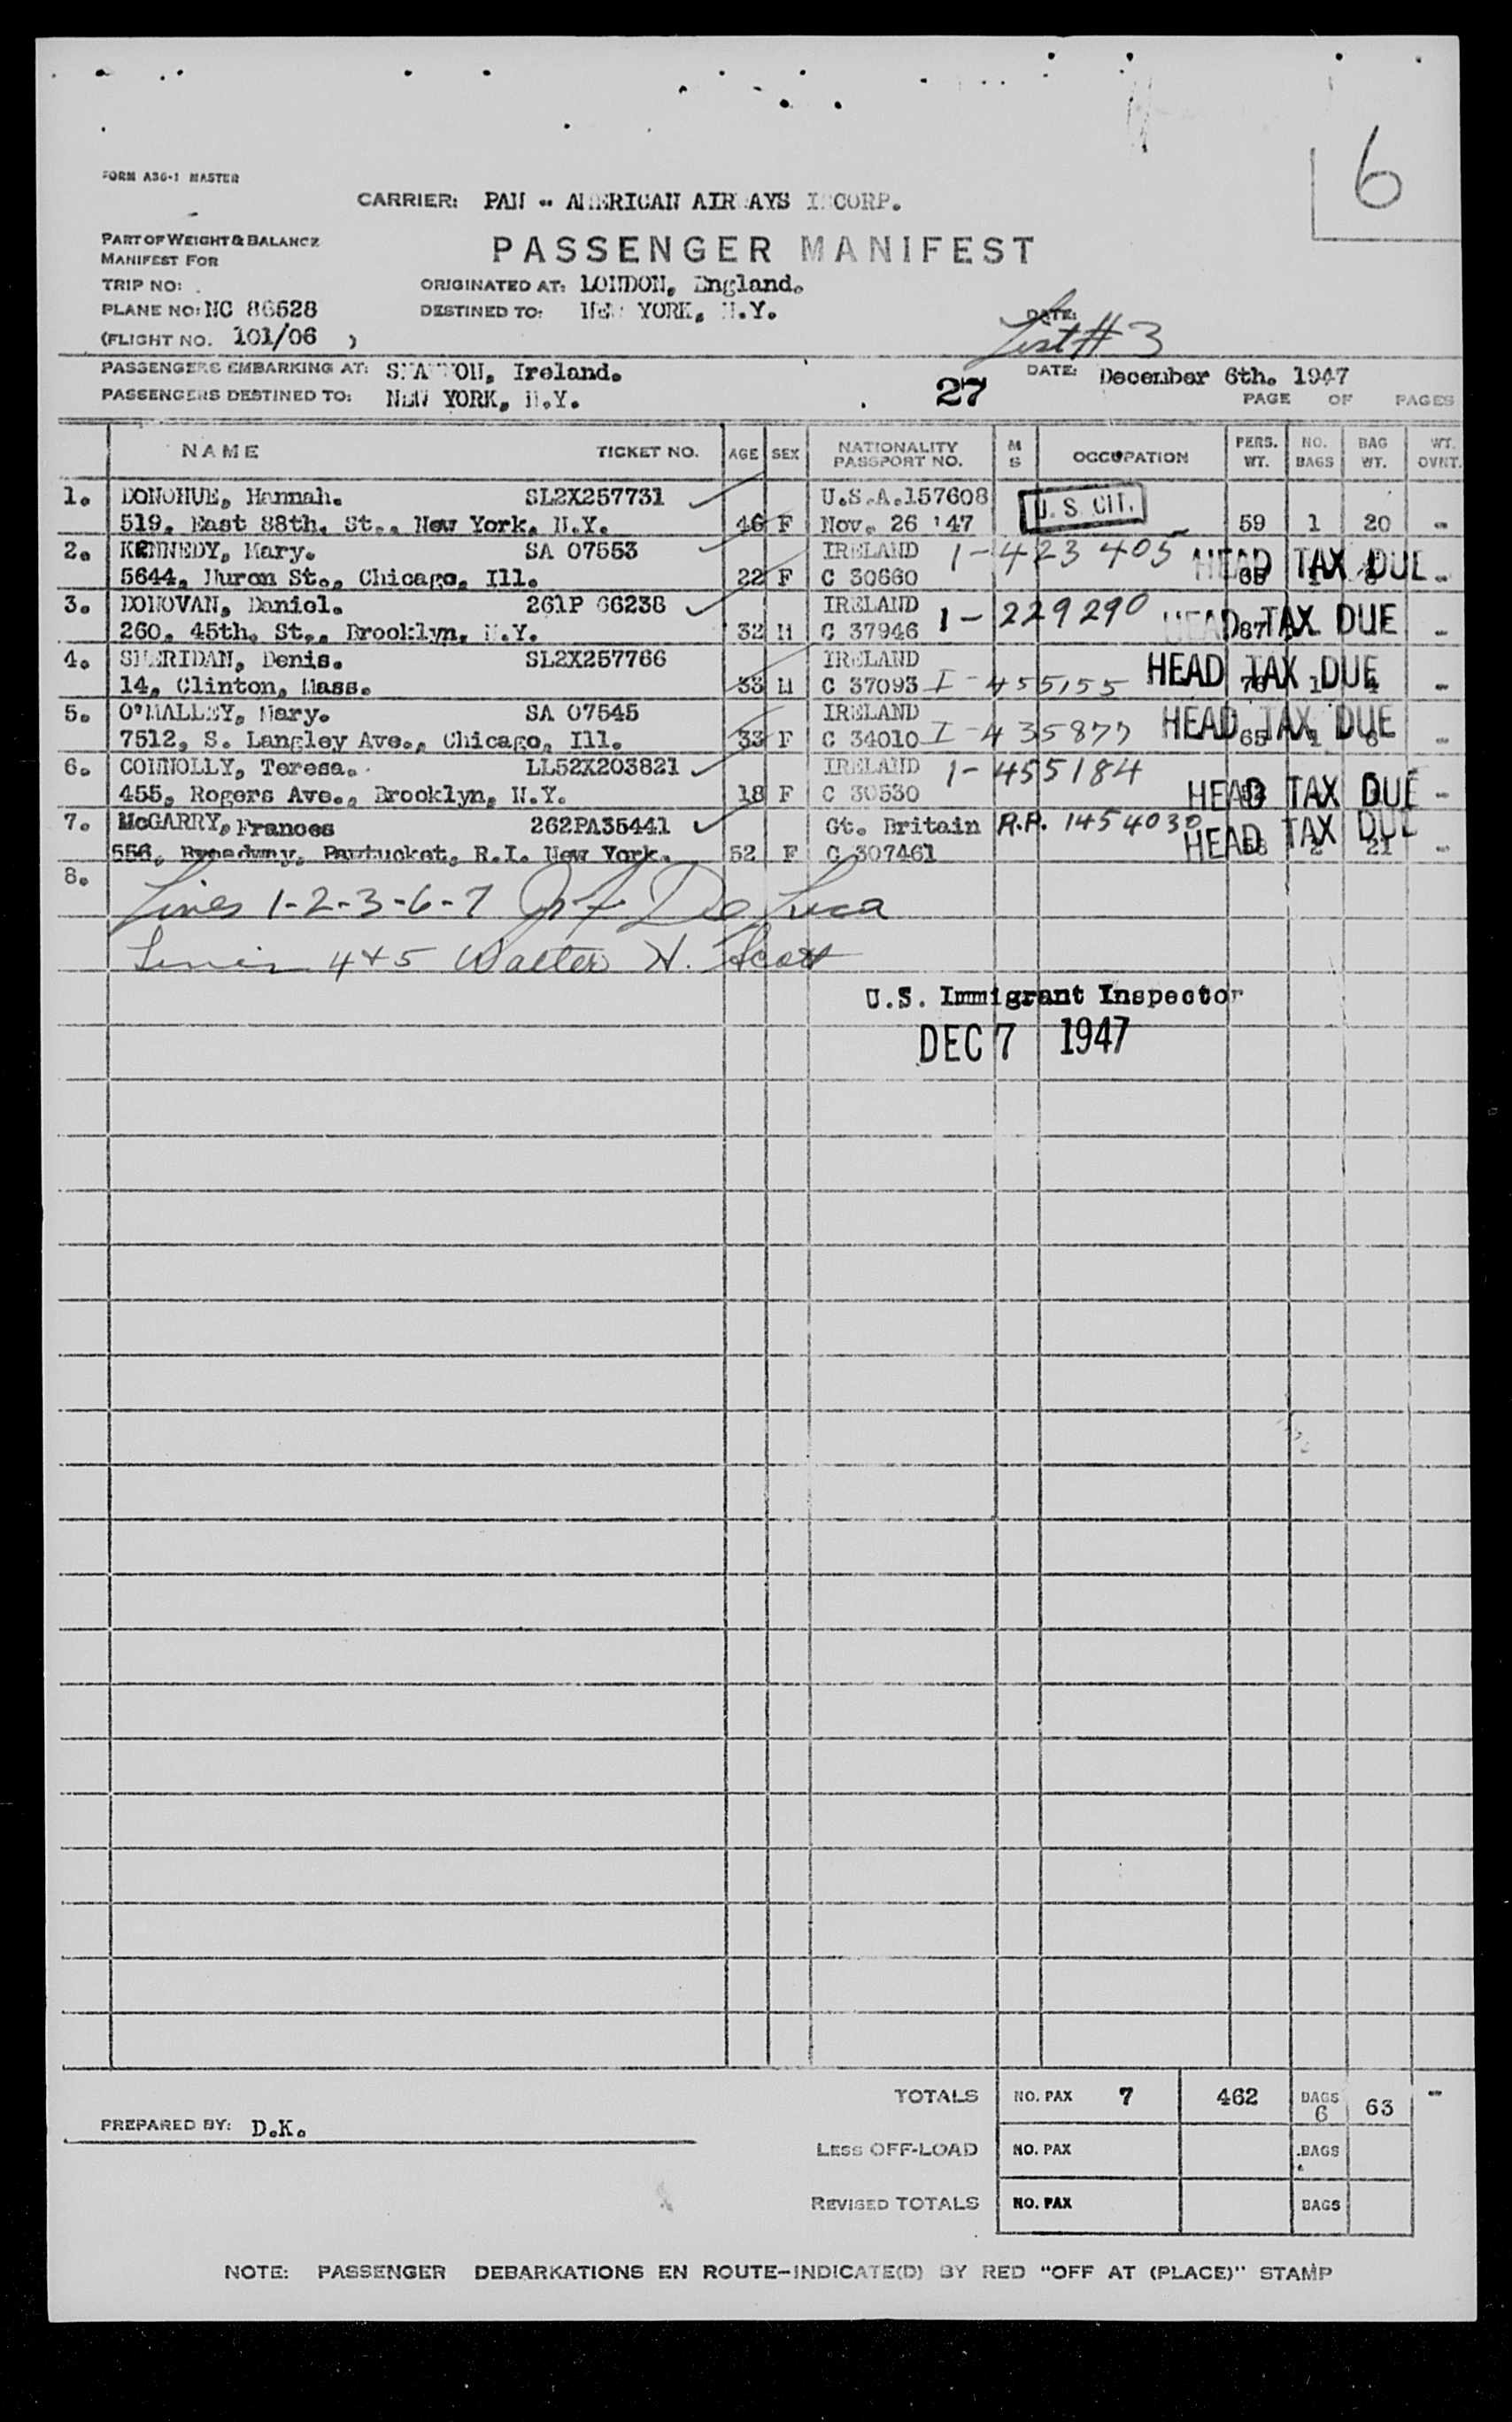 6
FORM A36-1 MASTER
CARRIER: PAN - AMERICAN AIRWAYS INCORP.
PART OF WEIGHT & BALANCE
MANIFEST FOR
PASSENGER MANIFEST
TRIP NO:
ORIGINATED AT: LONDON, England.
PLANE NO: NC 86528
DESTINED TO: NEW YORK, N.Y.
DATE:
(FLIGHT NO. 101/06 )
List # 3
PASSENGERS EMBARKING AT: SHANNON, Ireland.
27
DATE: December 6th. 1947
PASSENGERS DESTINED TO: NEW YORK, N.Y.
PAGE OF PAGES
NAME TICKET NO. AGE SEX NATIONALITY PASSPORT NO. M S OCCUPATION PERS. WT. NO. BAGS BAG WT. WT. OVNT.
1. DONOHUE, Hannah. SL2X257731 U.S.A.157608 U.S. CIT.
519, East 88th, St., New York, N.Y. 46 F Nov. 26 '47 59 1 20 -
2. KENNEDY, Mary. SA 07553 IRELAND 1-423405 HEAD TAX DUE
5644, Huron St., Chicago, Ill. 22 F C 30660 -
3. DONOVAN, Daniel. 261P 66238 IRELAND 1-229290 HEAD TAX DUE
260, 45th, St., Brooklyn, N.Y. 32 M C 37946 87 -
4. SHERIDAN, Denis. SL2X257766 IRELAND HEAD TAX DUE
14, Clinton, Mass. 33 M C 37093 I-455155 1 4 -
5. O'MALLEY, Mary. SA 07545 IRELAND HEAD TAX DUE
7512, S. Langley Ave., Chicago, Ill. 33 F C 34010 I-435877 65 1 6 -
6. CONNOLLY, Teresa. LL52X203821 IRELAND 1-455184
455, Rogers Ave., Brooklyn, N.Y. 18 F C 30530 HEAD TAX DUE -
7. McGARRY, Frances 262PA35441 Gt. Britain R.P. 1454030
556, Broadway, Pawtucket, R.I. New York. 52 F C 307461 HEAD TAX DUE 2 21 -
8.
Lines 1-2-3-6-7 De Luca
Lines 4+5 Walter H. Scott
U.S. Immigrant Inspector
DEC 7 1947
TOTALS NO. PAX 7 462 BAGS 6 63 -
PREPARED BY: D.K.
LESS OFF-LOAD NO. PAX BAGS
REVISED TOTALS NO. PAX BAGS
NOTE: PASSENGER DEBARKATIONS EN ROUTE-INDICATE(D) BY RED "OFF AT (PLACE)" STAMP